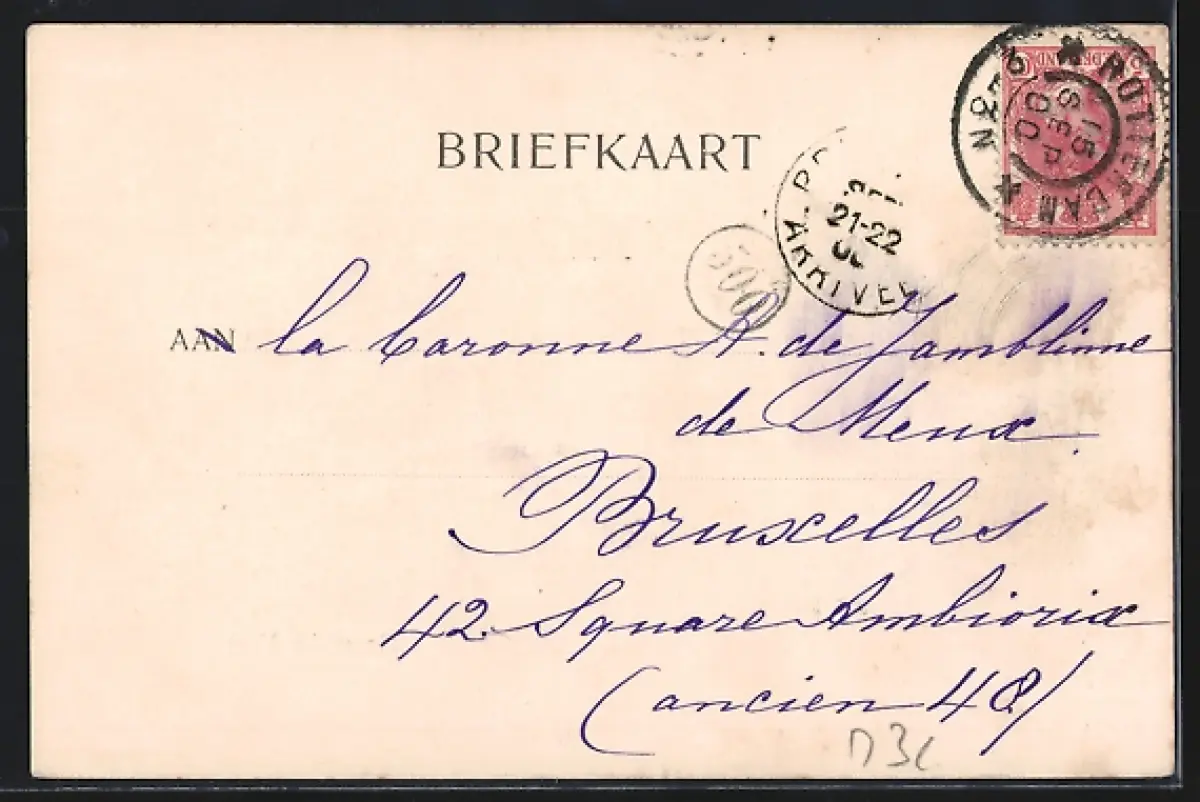 BRIEFKAART
ROTTERDAM
15 SEP 00
No 6
21-22
ARRIVEE
500
AAN la baronne A. de Jamblinne
de Meux
Bruxelles
42 Square Ambiorix
(ancien 48)